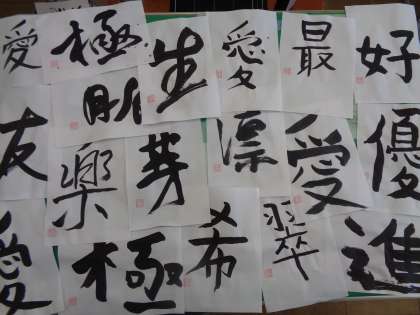 愛 極 生 愛 最 好
友 楽 芽 凛 愛 優
愛 極 希 翠 進